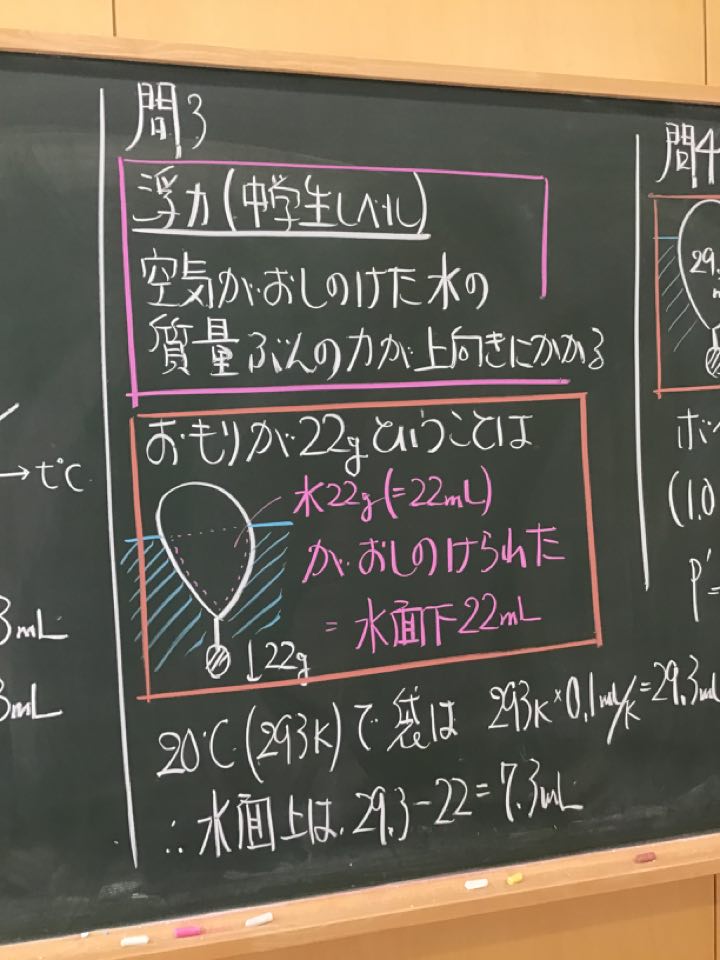 →t℃
3mL
3mL
問3
浮力(中学生レベル)
空気がおしのけた水の
質量ぶんの力が上向きにかかる
おもりが22gということは
水22g(=22mL)
がおしのけられた
=水面下22mL
↓22g
20℃(293K)で袋は 293K×0.1mL/K=29.3mL
∴水面上は、29.3-22=7.3mL
問4
29.
(1.0
P'=